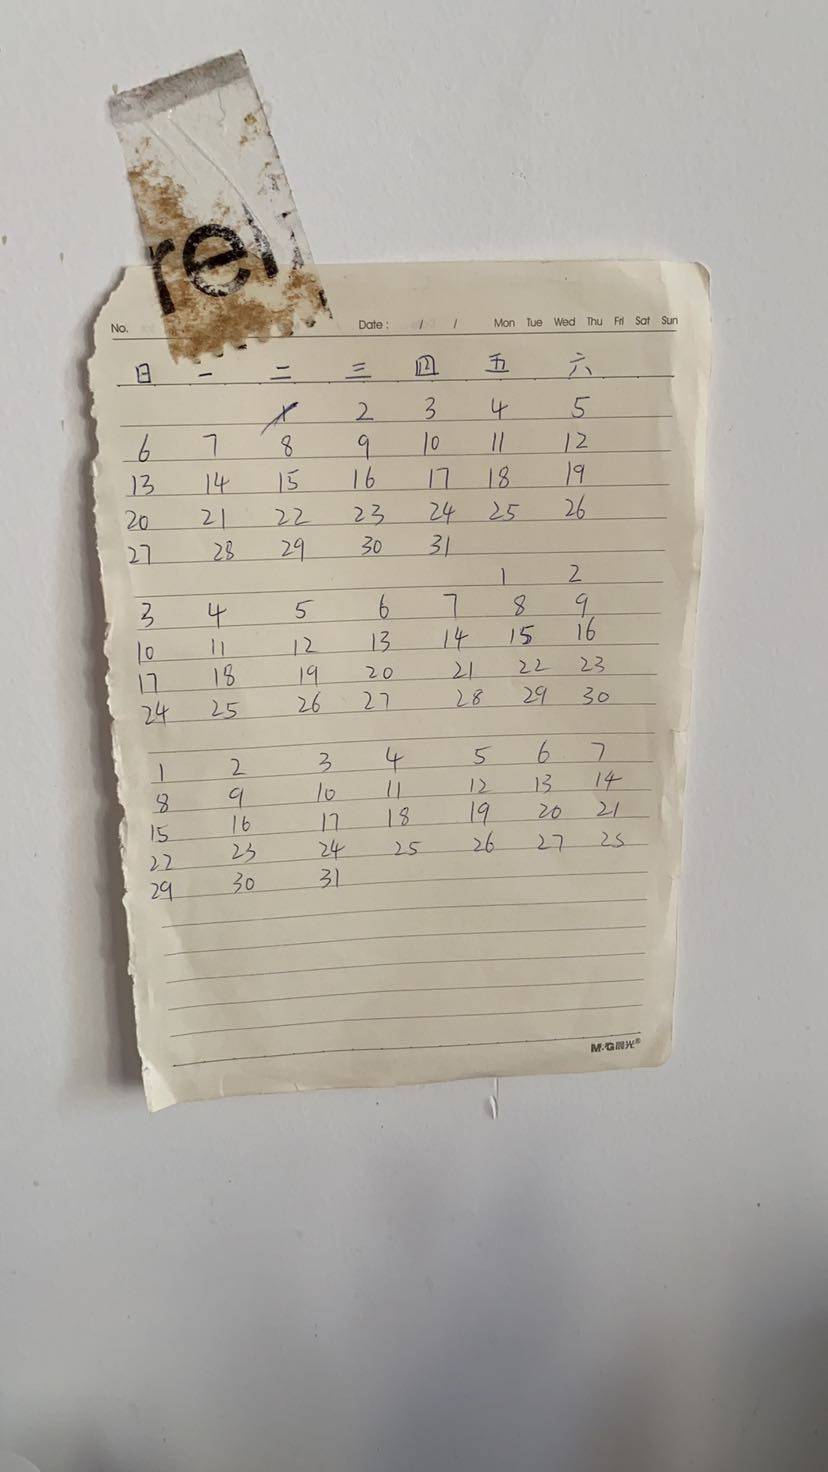 rel
No. Date: / / Mon Tue Wed Thu Fri Sat Sun
日 一 二 三 四 五 六
1 2 3 4 5
6 7 8 9 10 11 12
13 14 15 16 17 18 19
20 21 22 23 24 25 26
27 28 29 30 31
1 2
3 4 5 6 7 8 9
10 11 12 13 14 15 16
17 18 19 20 21 22 23
24 25 26 27 28 29 30
1 2 3 4 5 6 7
8 9 10 11 12 13 14
15 16 17 18 19 20 21
22 23 24 25 26 27 28
29 30 31
M&G晨光®